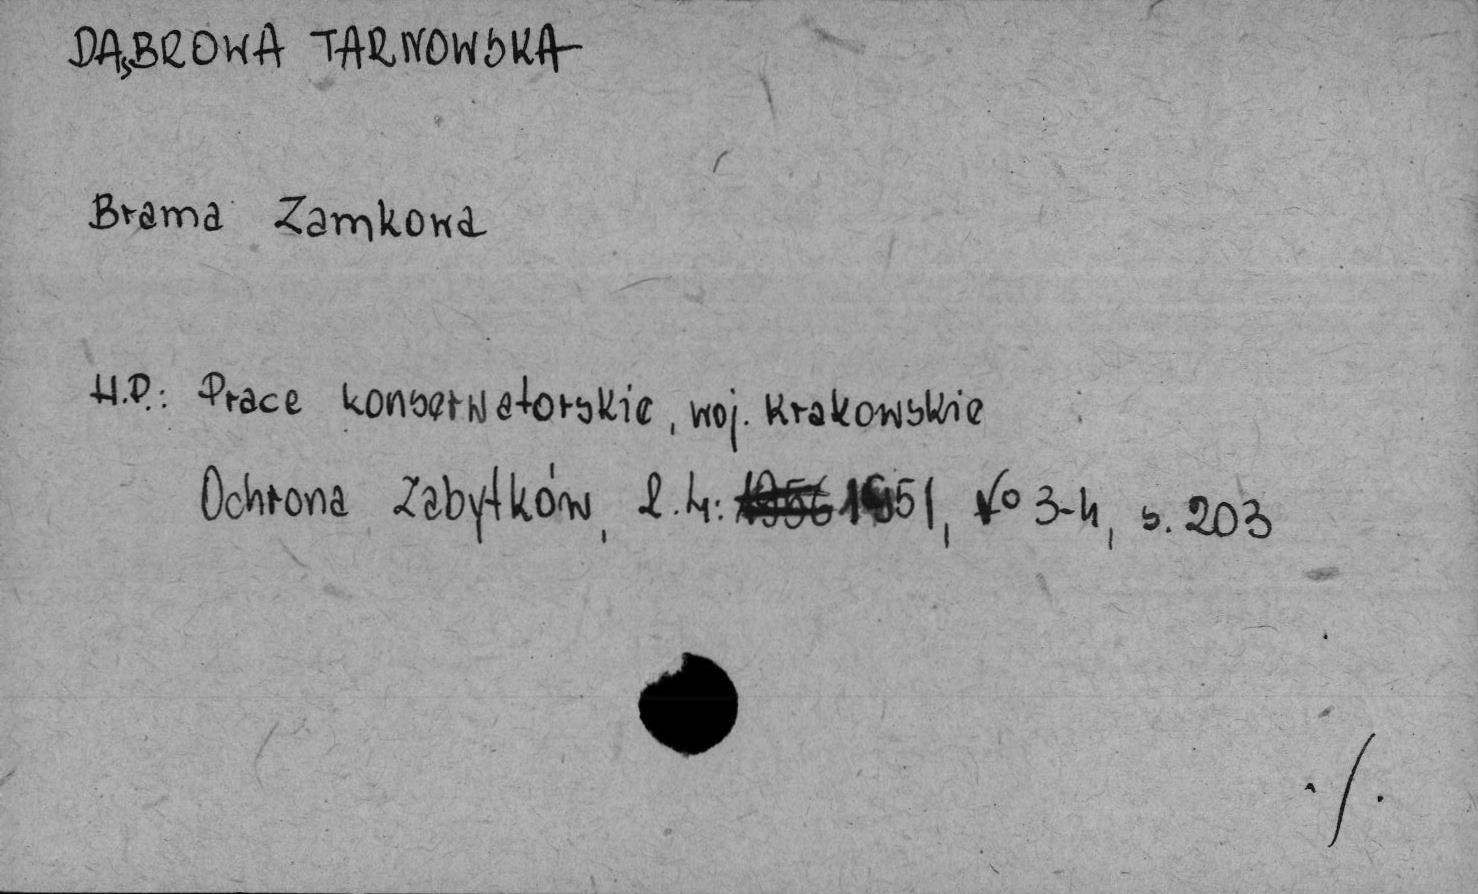 DĄBROWA TARNOWSKA
Brama Zamkowa
H.P.: Prace konserwatorskie, woj. Krakowskie
Ochrona Zabytków, R. 4: 1951, No 3-4, s. 203
./.